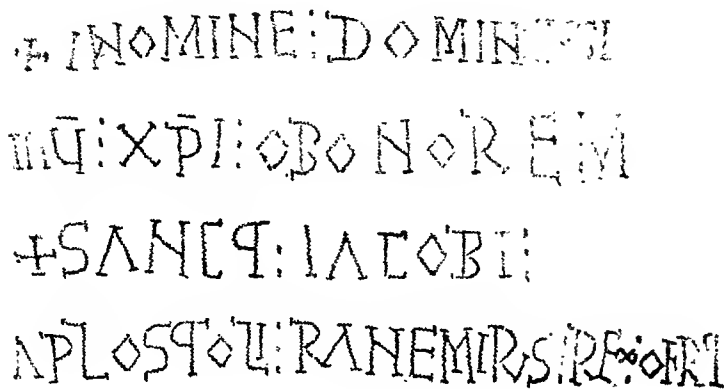 + INOMINE ⋮ DOMINI
ⅢU̅ ⋮ XP̅I ⋮ OBONOREM
+ SANCꟼ ⋮ IACOBI ⋮
APLOSꟼOLI ⋮ RANEMIRUS ⋮ REX OFRT